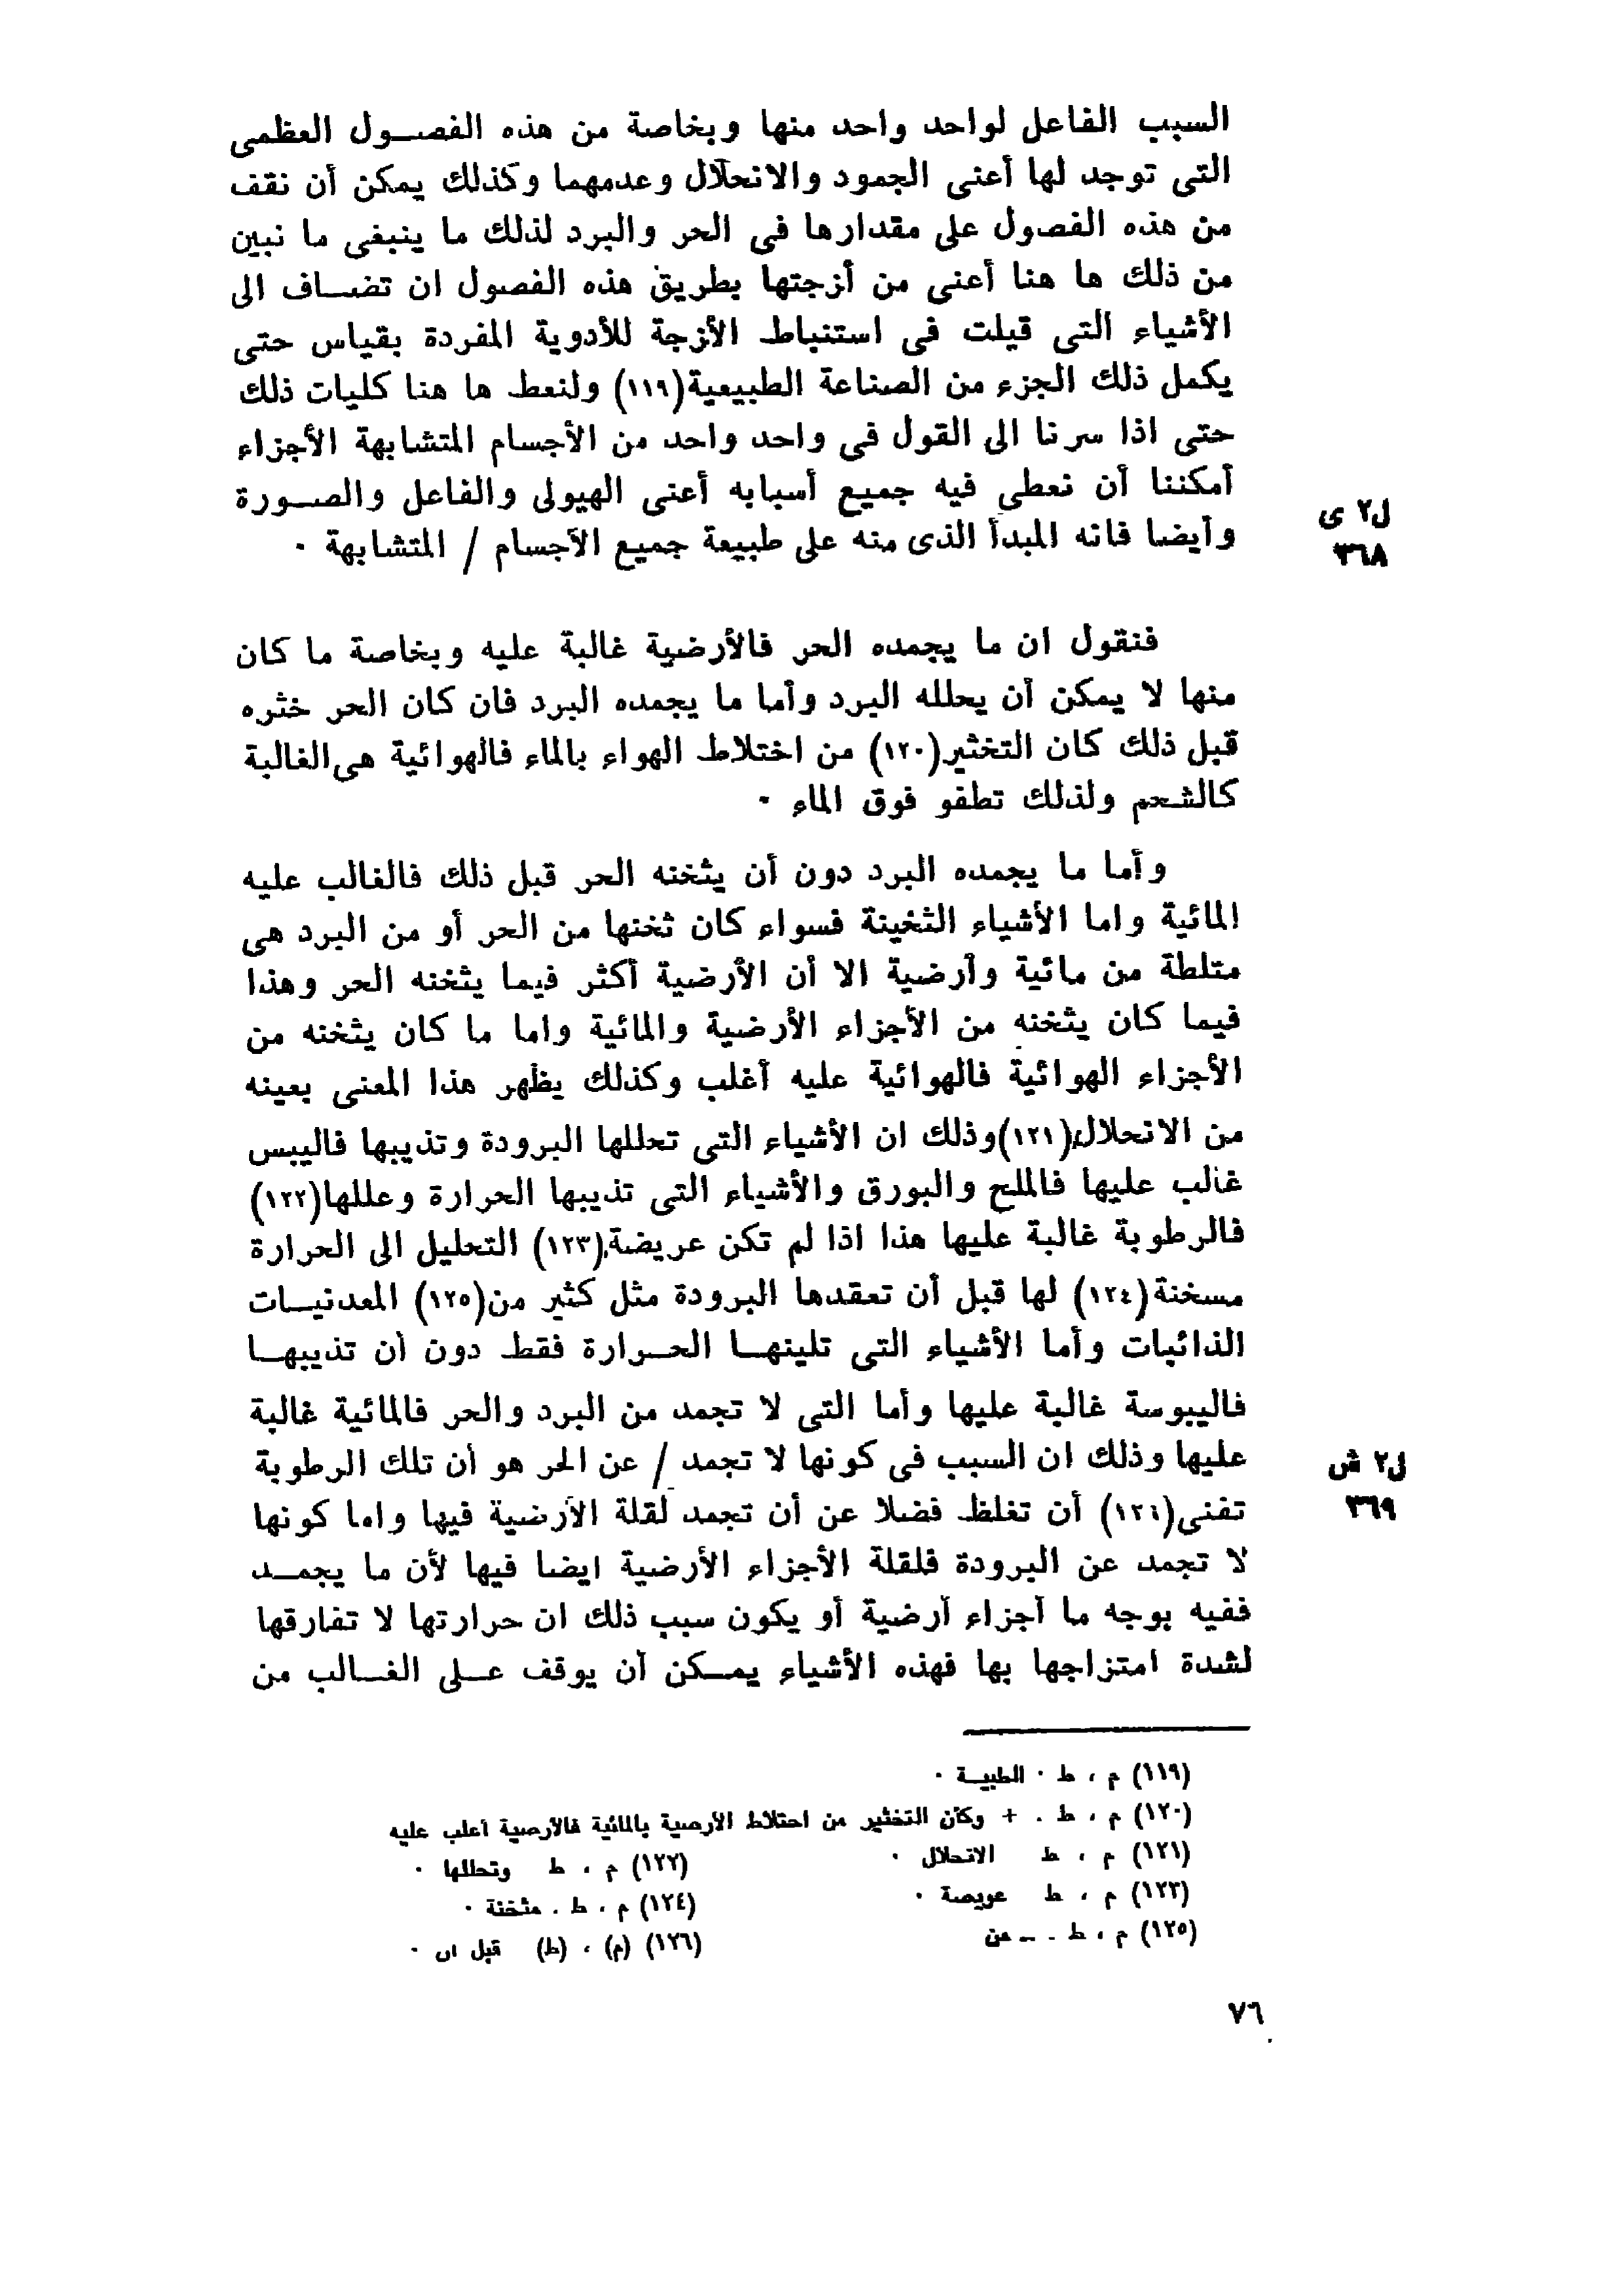 السبب الفاعل لواحد واحد منها وبخاصة من هذه الفصــول العظمى
التى توجد لها أعنى الجمود والانحلال وعدمهما وكذلك يمكن أن نقف
من هذه الفصول على مقدارها فى الحر والبرد لذلك ما ينبغى ما نبين
من ذلك ها هنا أعنى من أزجتها بطريق هذه الفصول ان تضــاف الى
الأشياء التى قيلت فى استنباط الأزجة للأدوية المفردة بقياس حتى
يكمل ذلك الجزء من الصناعة الطبيعية(١١٩) ولنعط ها هنا كليات ذلك
حتى اذا سرنا الى القول فى واحد واحد من الأجسام المتشابهة الأجزاء
أمكننا أن نعطى فيه جميع أسبابه أعنى الهيولى والفاعل والصــورة
وأيضا فانه المبدأ الذى منه على طبيعة جميع الأجسام / المتشابهة ٠
ل٢ ى
٣٦٨
فنقول ان ما يجمده الحر فالأرضية غالبة عليه وبخاصة ما كان
منها لا يمكن أن يحلله البرد وأما ما يجمده البرد فان كان الحر خثره
قبل ذلك كان التخثير(١٢٠) من اختلاط الهواء بالماء فالهوائية هى الغالبة
كالشحم ولذلك تطفو فوق الماء ٠
وأما ما يجمده البرد دون أن يثخنه الحر قبل ذلك فالغالب عليه
المائية واما الأشياء الثخينة فسواء كان ثخنها من الحر أو من البرد هى
متلطة من مائية وأرضية الا أن الأرضية أكثر فيما يثخنه الحر وهذا
فيما كان يثخنه من الأجزاء الأرضية والمائية واما ما كان يثخنه من
الأجزاء الهوائية فالهوائية عليه أغلب وكذلك يظهر هذا المعنى بعينه
من الانحلال(١٢١)وذلك ان الأشياء التى تحللها البرودة وتذيبها فاليبس
غالب عليها فالملح والبورق والأشياء التى تذيبها الحرارة وعللها(١٢٢)
فالرطوبة غالبة عليها هذا اذا لم تكن عريضة(١٢٣) التحليل الى الحرارة
مسخنة(١٢٤) لها قبل أن تعقدها البرودة مثل كثير من(١٢٥) المعدنيــات
الذائبات وأما الأشياء التى تلينهــا الحــرارة فقط دون أن تذيبهــا
فاليبوسة غالبة عليها وأما التى لا تجمد من البرد والحر فالمائية غالبة
عليها وذلك ان السبب فى كونها لا تجمد / عن الحر هو أن تلك الرطوبة
ل٢ ش
٣٦٩
تفنى(١٢٦) أن تغلظ فضلا عن أن تجمد لقلة الأرضية فيها واما كونها
لا تجمد عن البرودة فلقلة الأجزاء الأرضية ايضا فيها لأن ما يجمــد
ففيه بوجه ما أجزاء أرضية أو يكون سبب ذلك ان حرارتها لا تفارقها
لشدة امتزاجها بها فهذه الأشياء يمــكن أن يوقف عــلى الغــالب من
(١١٩) م ، ط ٠ الطبيــة ٠
(١٢٠) م ، ط . + وكان التخثير من احتلاط الأرصية بالمائية فالأرصية أعلب عليه
(١٢١) م ، ط الانحلال ٠ (١٢٢) م ، ط وتحللها ٠
(١٢٣) م ، ط عويصة ٠ (١٢٤) م ، ط . مثخنة ٠
(١٢٥) م ، ط . ــ من (١٢٦) (م) ، (ط) قبل ان ٠
٧٦